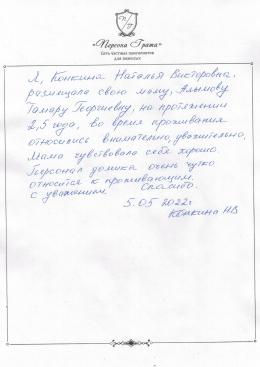 «Персона Грата»
Сеть частных пансионатов
для пожилых
Я, Конкина Наталья Викторовна,
размещала свою маму, Алымову
Тамару Георгиевну, на протяжении
2,5 года. Во время проживания
относились внимательно, уважительно,
Мама чувствовала себя хорошо.
Персонал домика очень чутко
относится к проживающим.
с уважением Спасибо.
5.05 2022г
Конкина Н.В